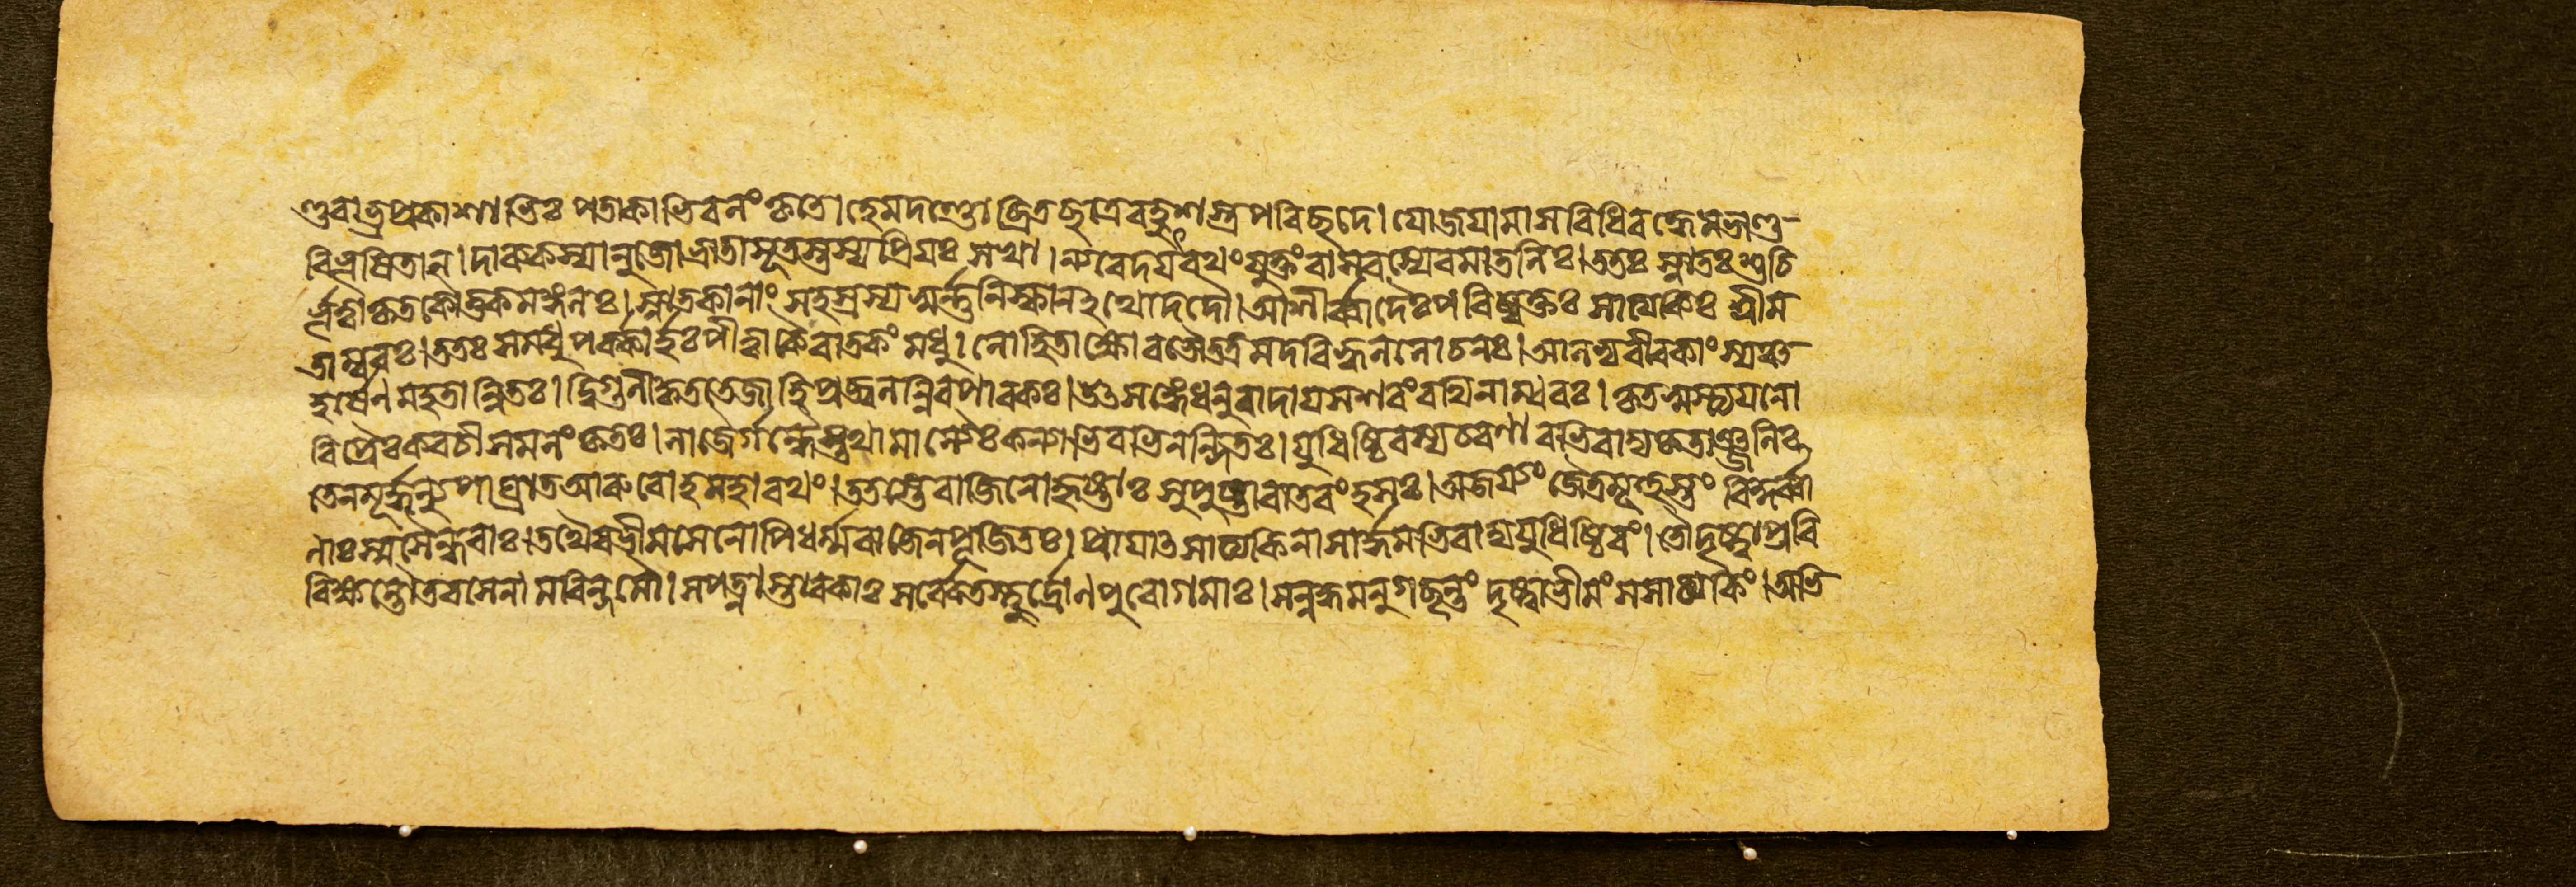 ণ্ডুরাভ্রপ্রকাশাভিঃ পতাকাভিরলংকৃতে। হেমদণ্ডোচ্ছ্রিতছত্রে বহুশস্ত্রপরিছদে। যোজয়ামাস বিধিবদ্ধেমভাণ্ড-
বিভূষিতান্। দারুকস্যানুজো ভ্রাতা সূতস্তস্য প্রিয়ঃ সখা। ন্যবেদয়দ্রথং যুক্তং বাসবস্যেব মাতলিঃ। ততঃ স্নাতঃ শুচি
র্ভূত্বা কৃতকৌতুকমঙ্গলঃ। স্নাতকানাং সহস্রস্য স্বর্ন্ননিষ্কানথো দদৌ। আশীর্ব্বাদৈঃ পরিষ্বক্তঃ সাত্যকিঃ শ্রীম
তাম্বরঃ। ততঃ সমধুপর্ক্কার্হঃ পীত্বা কৈরাতকং মধু। লোহিতাক্ষো বভৌ তত্র মদবিহ্বললোচনঃ। আলভ্য বীরকাংস্যঞ্চ
হর্ষেণ মহতান্বিতঃ। দ্বিগুণীকৃততেজা হি প্রজ্বলন্নিব পাবকঃ। উৎসঙ্গে ধনুরাদায় সশরং রথিনাম্বরঃ। কৃতস্বস্ত্যয়নো
বিপ্রৈঃ কবচী সমলংকৃতঃ। লাজৈর্গন্ধৈস্তথা মাল্যৈঃ কন্যাভিরভিনন্দিতঃ। যুধিষ্ঠিরস্য চরণাবভিবাদ্য কৃতাঞ্জলিঃ
তেন মূর্দ্ধন্যুপাঘ্রাত আরুরোহ মহারথং। ততস্তে বাজিনো হৃষ্টাঃ সুপুষ্টা বাতরংহসঃ। অজয্যং জৈত্রমূহুস্তং বিকুর্ব্বা
ণাঃ স্ম সৈন্ধবাঃ। তথৈব ভীমসেনোপি ধর্ম্মরাজেন পূজিতঃ। প্রায়াৎ সাত্যকিনা সার্দ্ধমভিবাদ্য যুধিষ্ঠিরং। তৌ দৃষ্ট্বা প্রবি
বিক্ষন্তৌ তব সেনামরিন্দমৌ। সপত্নাস্তাবকাঃ সর্ব্বে তস্থুর্দ্রোণপুরোগমাঃ। সন্নদ্ধমনুগছন্তং দৃষ্ট্বা ভীমং স সাত্যকিং। অভি